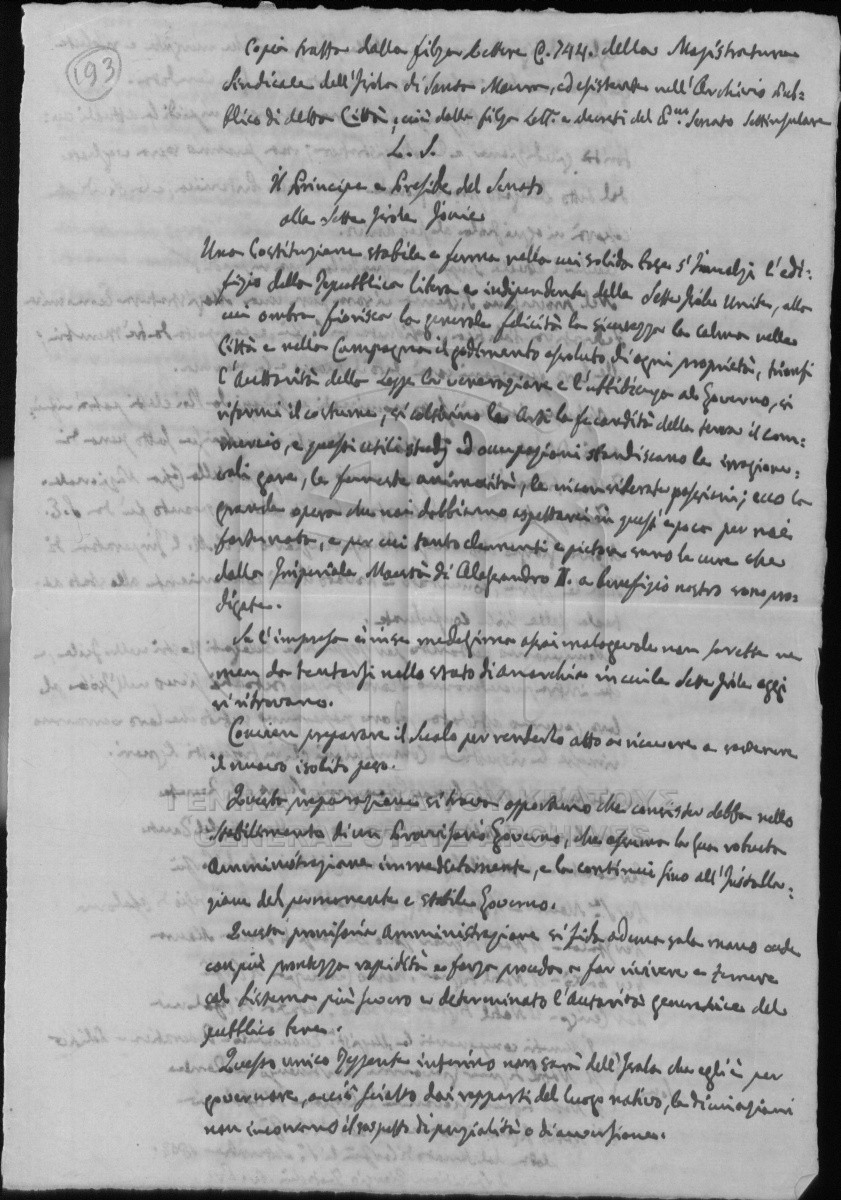 193
Copia tratta dalla filza Lettere C. 744. della Magistratura
Sindicale dell'Isola di Santa Maura, ed esistente nell'Archivio Pub=
blico di detta Città, cioè dalla filza Lett.e e decreti del Senato Settinsulare
L. S.
Il Principe e Preside del Senato
alle Sette Isole Jonie
Una Costituzione stabile e ferma nella cui solida base s'innalzi l'edi=
fizio della Repubblica libera e indipendente delle Sette Isole Unite, alla
cui ombra, fiorisca la generale felicità la sicurezza la calma nelle
Città e nella Campagna il godimento assoluto di ogni proprietà, trionfi
l'Auttorità della Legge la venerazione e l'ubbidienza al Governo, si
riformi il costume, si coltivino le Arti la fecondità della terra il com=
mercio, e questi utili studj ed occupazioni sbandiscano le irragione=
voli gare, le funeste animosità, le inconsiderate passioni; ecco la
grande opera che noi dobbiamo aspettarci in quest'epoca per noi
fortunata, e per cui tanto clementi e pietose sono le cure che
dalla Imperiale Maestà di Alessandro I. a benefizio nostro sono pro=
digate.
Se l'impresa è in se medesima assai malagevole non sarebbe ne
men da tentarsi nello stato di anarchia in cui le Sette Isole oggi
si ritrovano.
Convien preparare il suolo per renderlo atto a ricevere e sostenere
il nuovo insolito peso.
Questa preparazione si trova opportuno che consister debba nello
stabilimento di un Provvisorio Governo, che assuma la sua robusta
Amministrazione immediatamente, e la continui fino all'Installa=
zione del permanente e stabile Governo.
Questa provvisoria Amministrazione si fida ad una sola mano onde
con più prontezza rapidità e forza proceda a far rivivere e temere
col sistema più severo e determinato l'autorità generatrice del
pubblico bene.
Questo unico Reggente interino non sarà dell'Isola che egli è per
governare, acciò sciolto dai rapporti del luogo nativo, le di lui azioni
non incorrano il sospetto di parzialità o di avversione.
ΓΕΝΙΚΑ ΑΡΧΕΙΑ ΤΟΥ ΚΡΑΤΟΥΣ
GENERAL STATE ARCHIVES